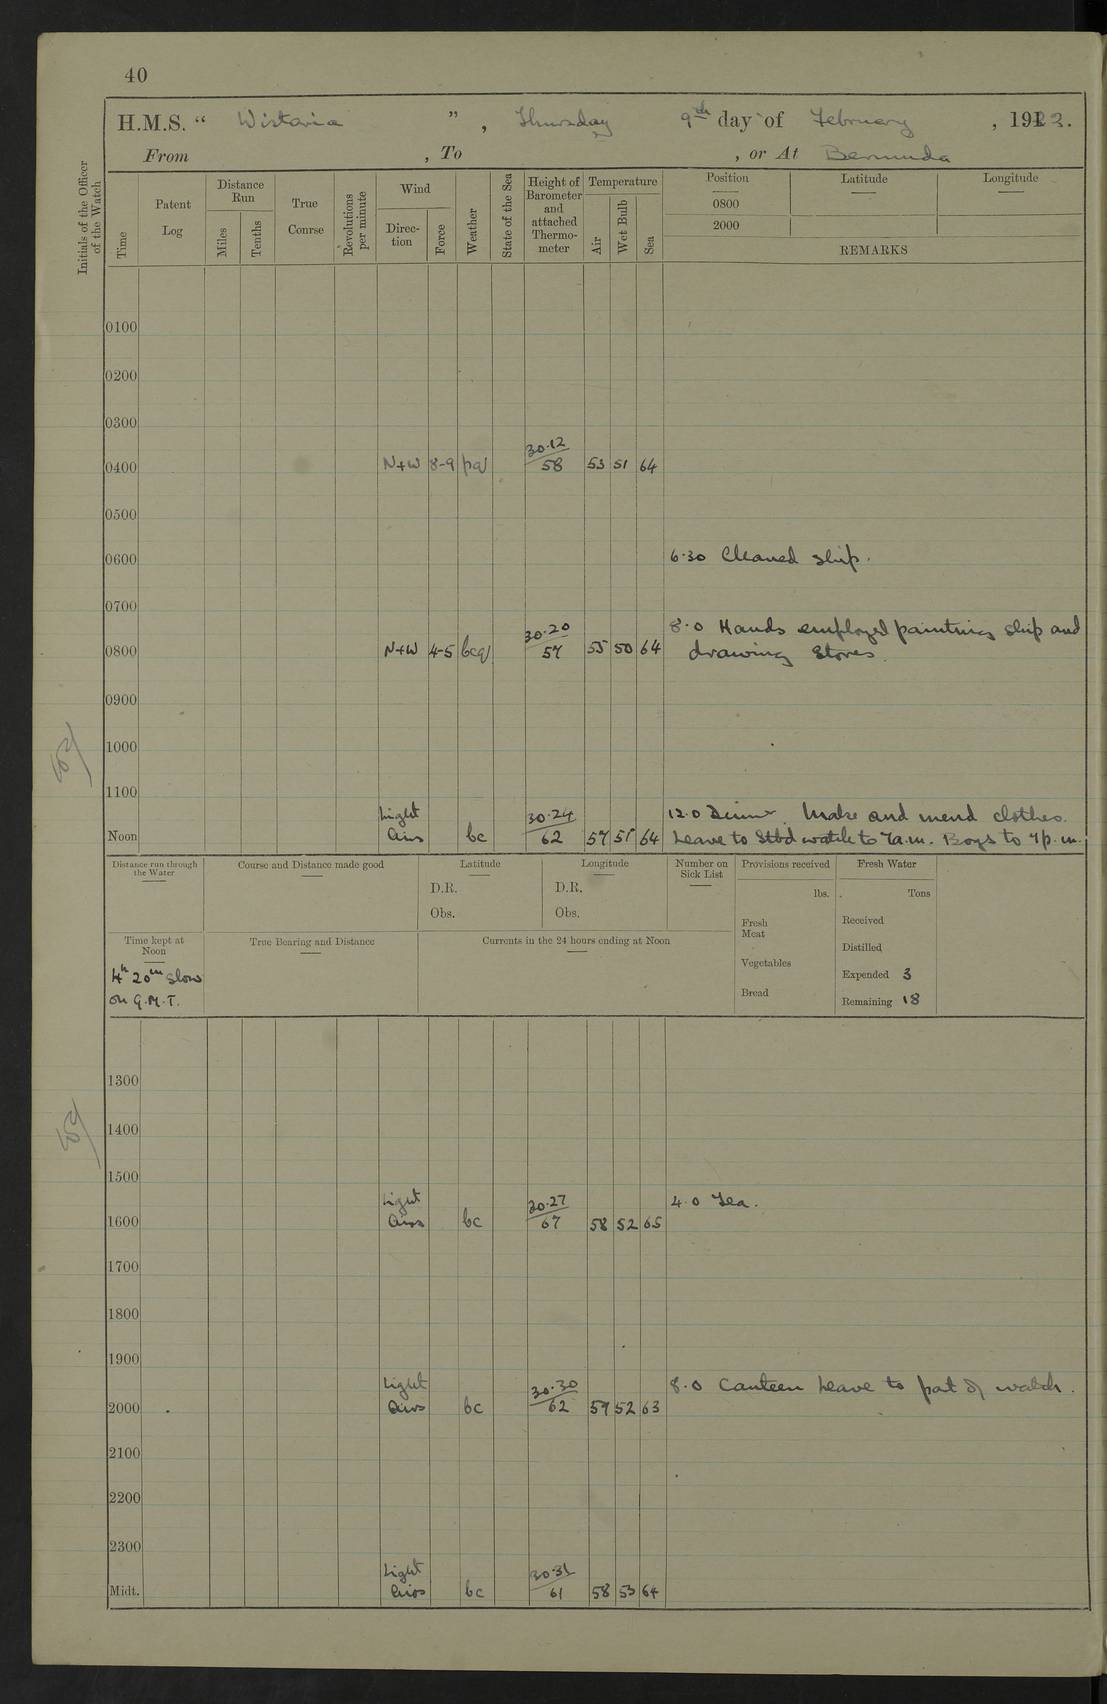 40
H.M.S. " Wistaria ", Thursday 9th day of February, 1923.
From , To , or At Bermuda
Initials of the Officer of the Watch
Time
Patent Log
Distance Run
Miles
Tenths
True Course
Revolutions per minute
Wind
Direction
Force
Weather
State of the Sea
Height of Barometer and attached Thermometer
Temperature
Air
Wet Bulb
Sea
Position Latitude Longitude
0800
2000
REMARKS
0100
0200
0300
0400 N+W 8-9 pq 30.12/58 53 51 64
0500
0600 6.30 Cleaned ship.
0700
8.0 Hands employed painting ship and
0800 N+W 4-5 bcq 30.20/57 55 50 64 drawing stores.
0900
1000
1100
Light 12.0 Dinner. Make and mend clothes.
Noon Airs bc 30.24/62 57 51 64 Leave to Stbd watch to 7 a.m. Boys to 7 p.m.
Distance run through the Water
Course and Distance made good
Latitude
D.R.
Obs.
Longitude
D.R.
Obs.
Number on Sick List
Provisions received
lbs.
Fresh Meat
Vegetables
Bread
Fresh Water
Tons
Received
Distilled
Expended 3
Remaining 18
Time kept at Noon
4h 20m slow
on G.M.T.
True Bearing and Distance
Currents in the 24 hours ending at Noon
1300
1400
1500
Light 4.0 Tea.
1600 Airs bc 30.27/67 58 52 65
1700
1800
1900
Light 8.0 Canteen Leave to part of watch.
2000 Airs bc 30.30/62 59 52 63
2100
2200
2300
Light
Midt. Airs bc 30.31/61 58 53 64